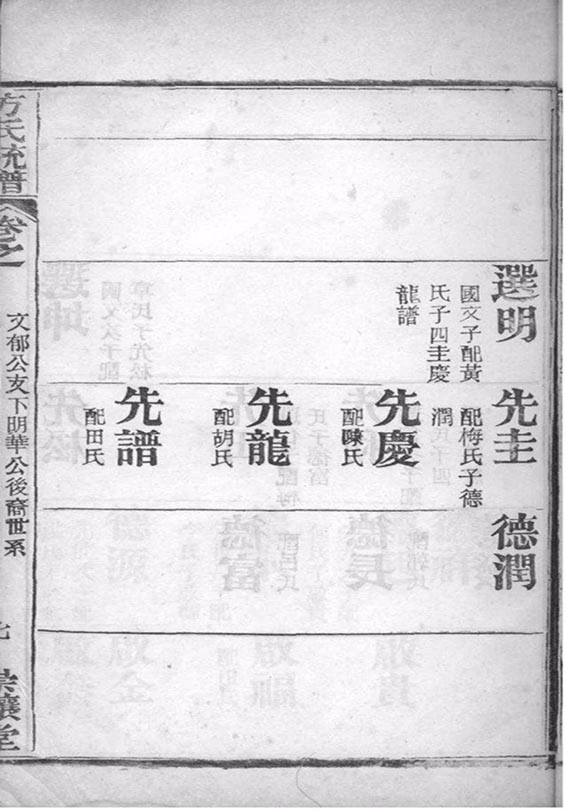 選明
國文子配黃
氏子四圭慶
龍譜
先圭
配梅氏子德
潤
先慶
配陳氏
先龍
配胡氏
先譜
配田氏
德潤
方氏統譜
卷之
文郁公支下明華公後裔世系
七